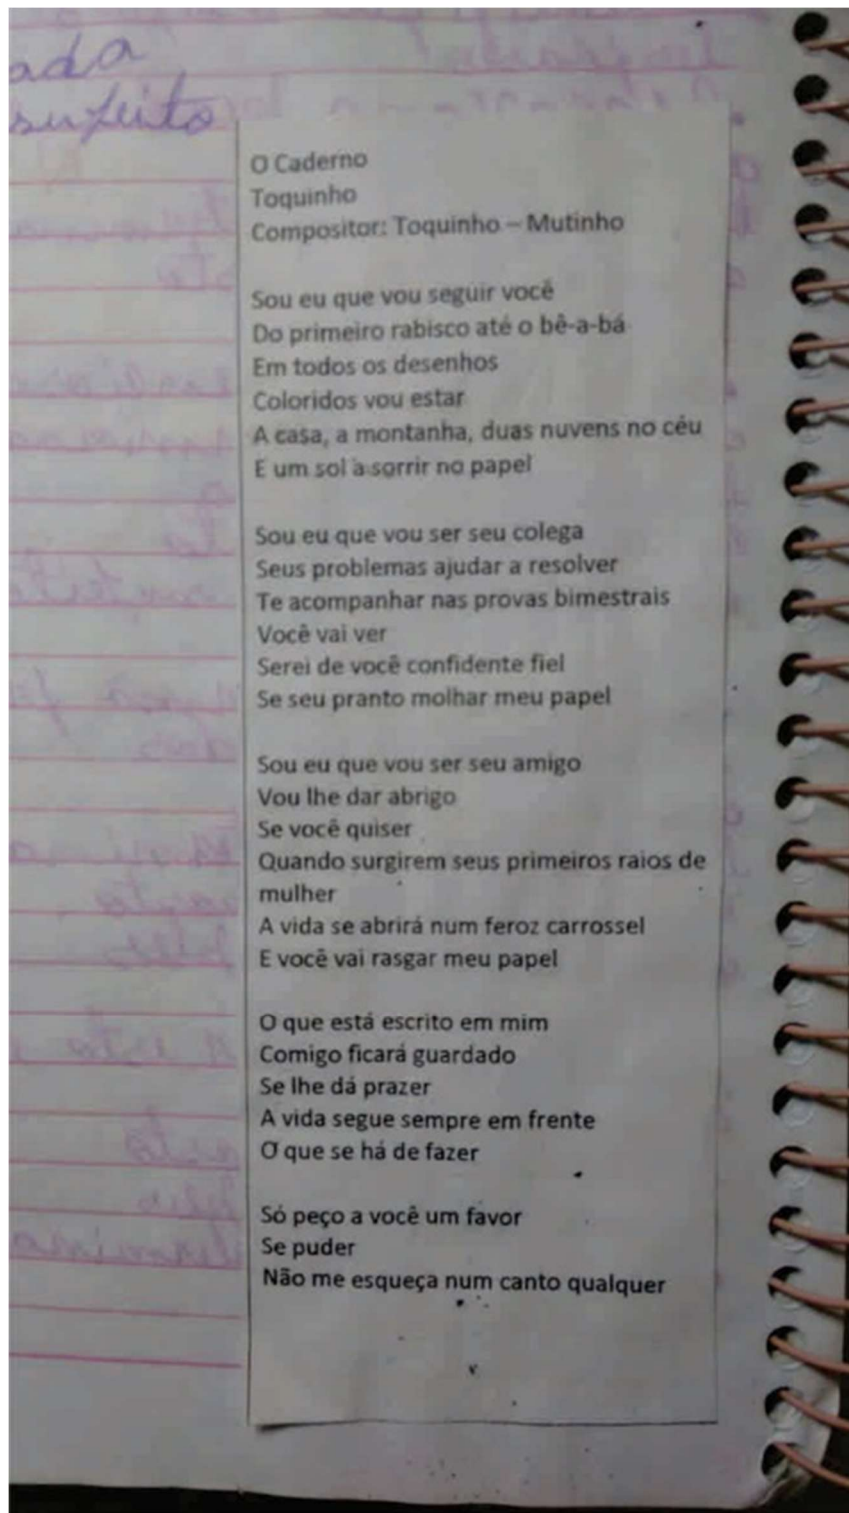 ada
sufeito
O Caderno
Toquinho
Compositor: Toquinho – Mutinho
Sou eu que vou seguir você
Do primeiro rabisco até o bê-a-bá
Em todos os desenhos
Coloridos vou estar
A casa, a montanha, duas nuvens no céu
E um sol a sorrir no papel
Sou eu que vou ser seu colega
Seus problemas ajudar a resolver
Te acompanhar nas provas bimestrais
Você vai ver
Serei de você confidente fiel
Se seu pranto molhar meu papel
Sou eu que vou ser seu amigo
Vou lhe dar abrigo
Se você quiser
Quando surgirem seus primeiros raios de
mulher
A vida se abrirá num feroz carrossel
E você vai rasgar meu papel
O que está escrito em mim
Comigo ficará guardado
Se lhe dá prazer
A vida segue sempre em frente
O que se há de fazer
Só peço a você um favor
Se puder
Não me esqueça num canto qualquer